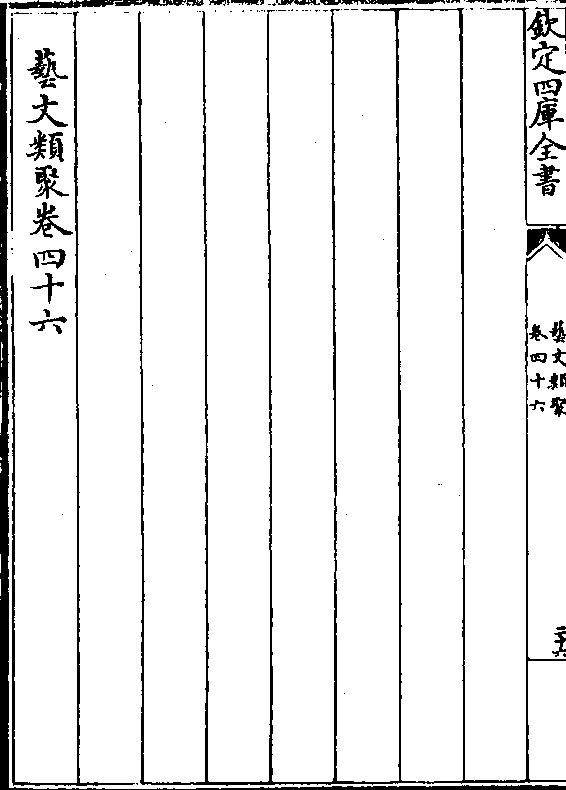 欽定四庫全書
藝文類聚
卷四十六
藝文類聚卷四十六